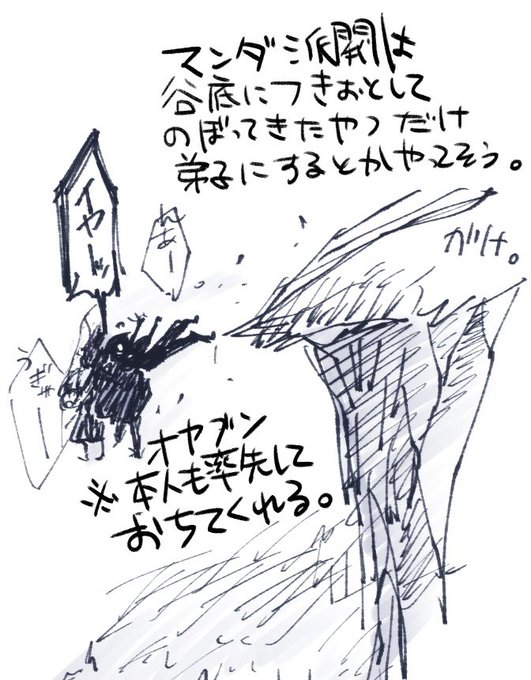 マンダミ派閥は
谷底につきおとして
のぼってきたやつだけ
弟子にするとかやってそう。
イヤーッ
がけ。
オヤブン
※本人も率先して
おちてくれる。